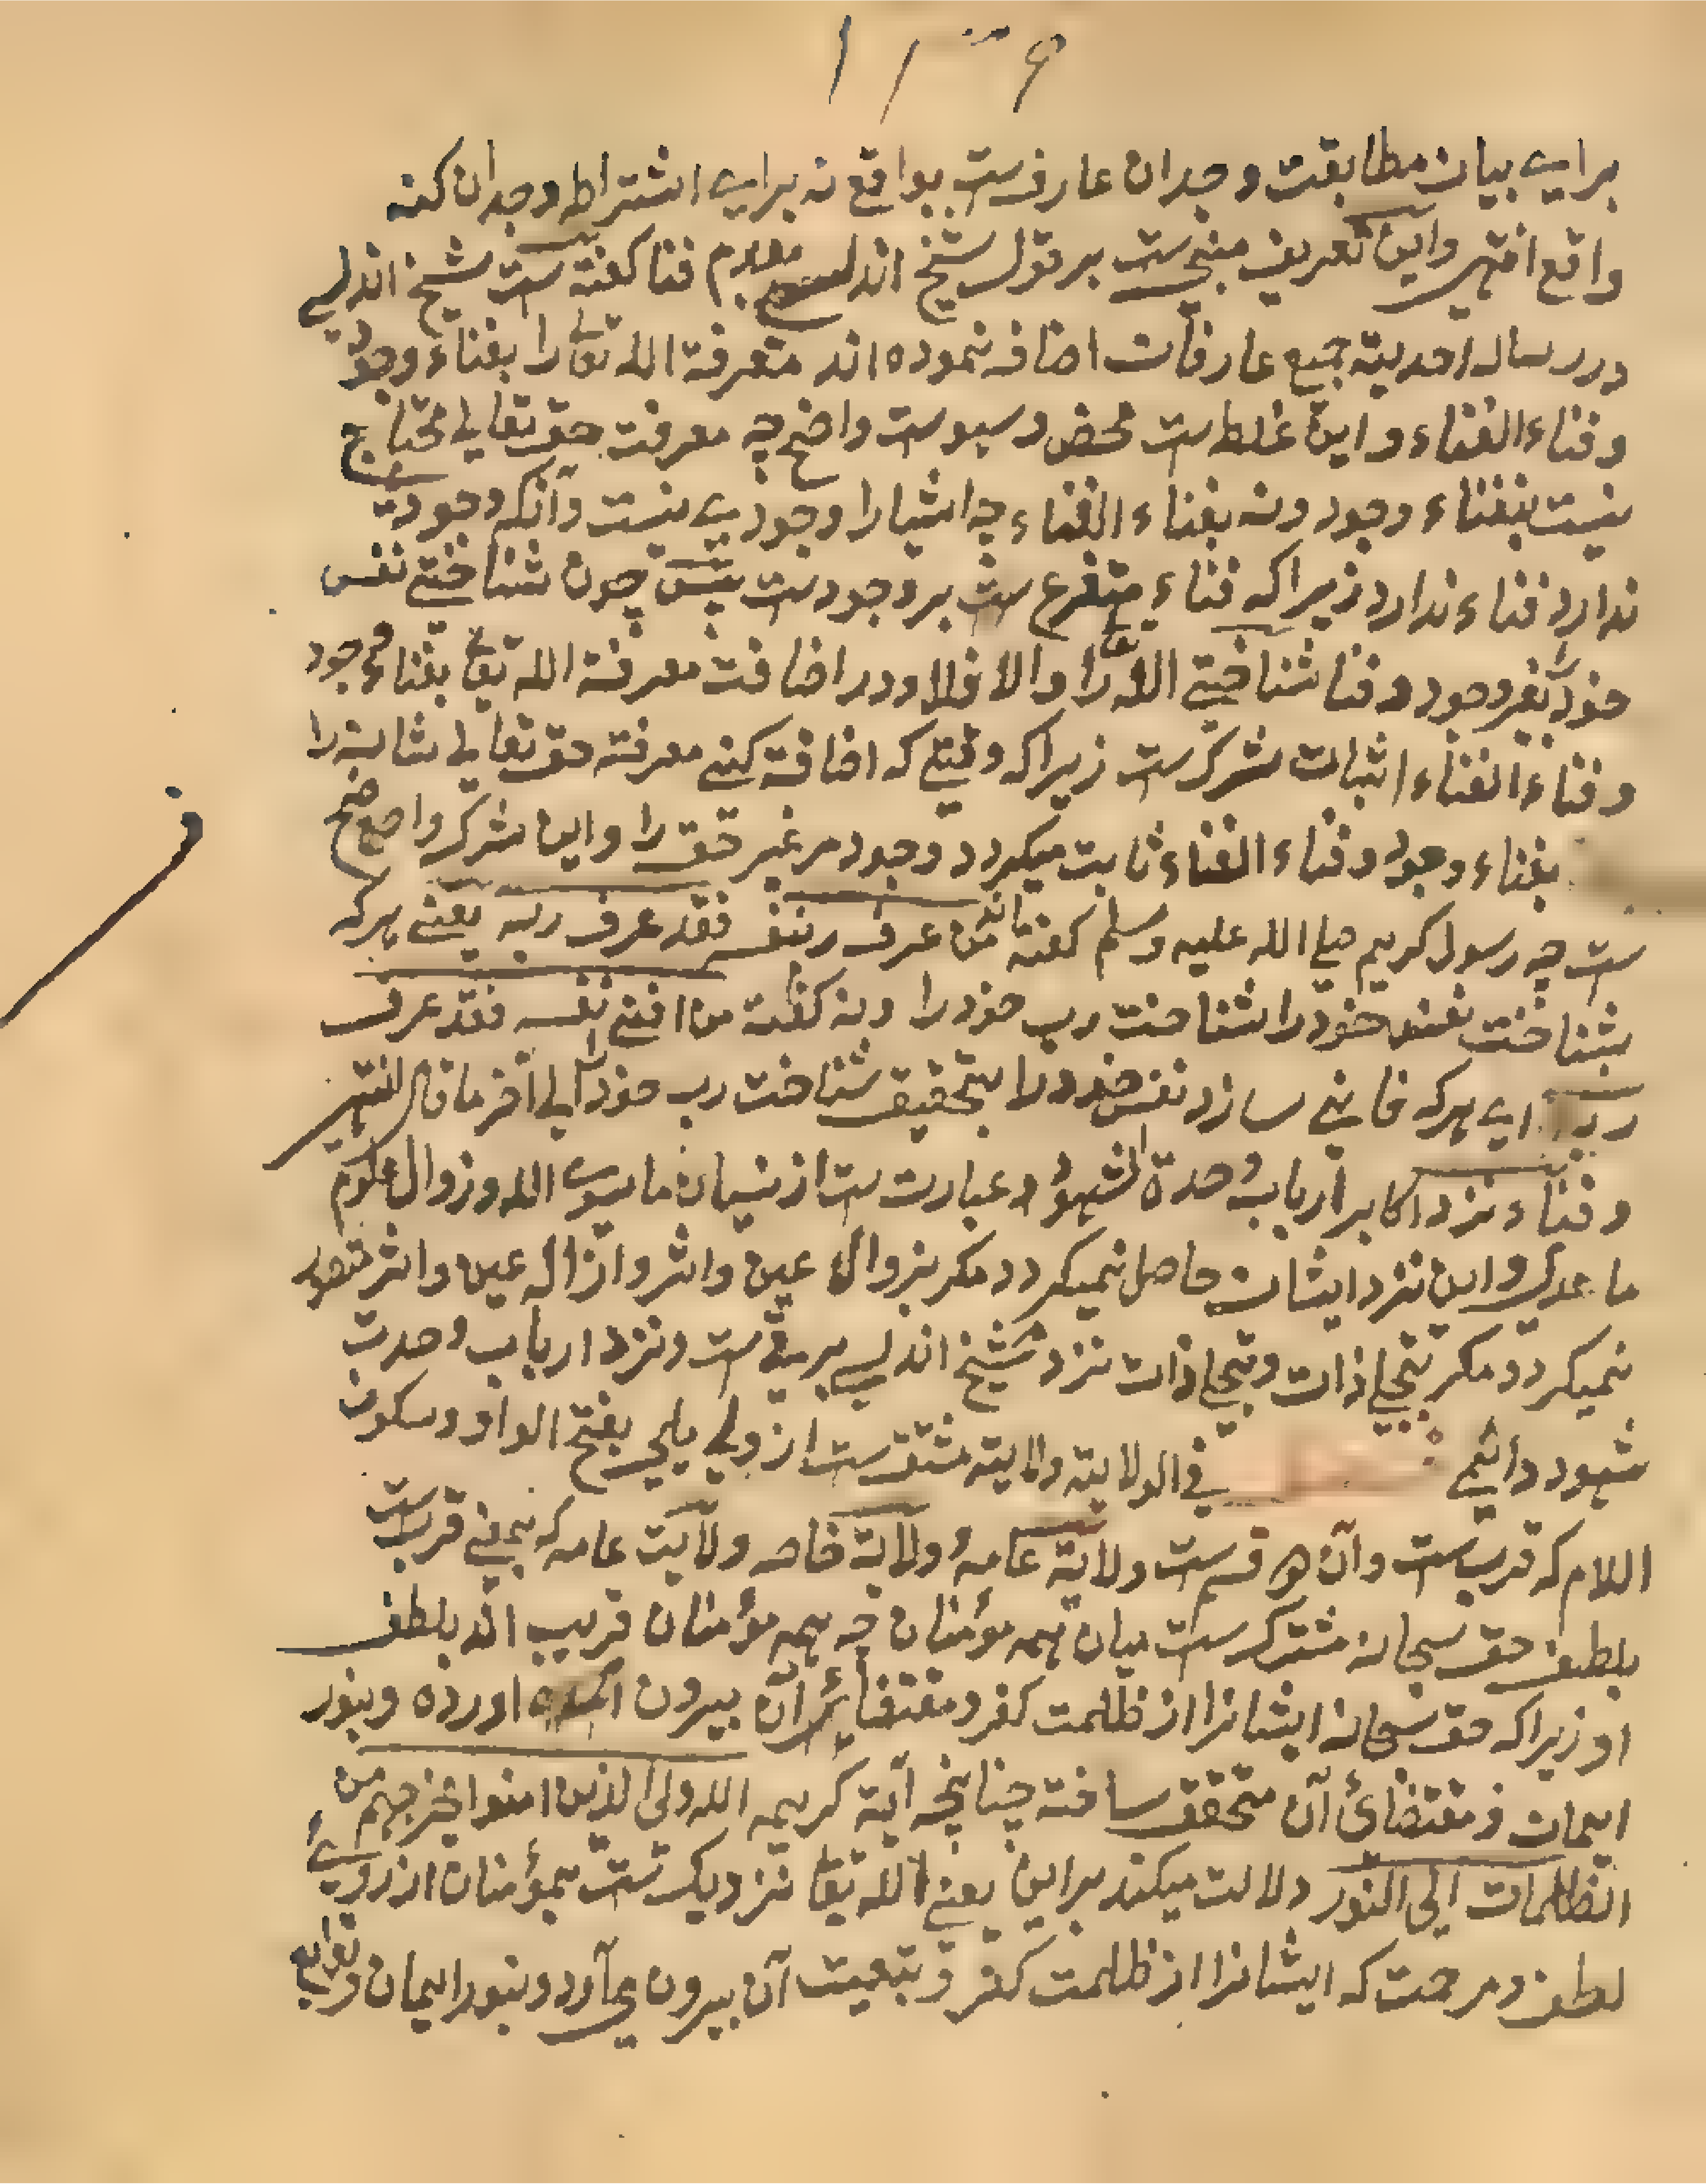 برای بیان مطابقت وجدان عارفست بواقع نه برای اشتراط وجدان کنه
واقع انتهی واین تعریف مبنی ست بر قول شیخ اندلسی معدوم فنا کفته ست شیخ اندلسی
در رساله احدیة جمیع عارفان اضافه نموده اند معرفة الله تعا را بفناء وجود
وفناء الفناء واین غلط ست محض وسهوست واضح چه معرفت حق تعالی محتاج
نیست بفناء وجود ونه بفناء الفناء چه اشیا را وجودی نیست وآنکه وجود
ندارد فناء ندارد زیراکه فناء متفرع ست بر وجودست پس چون شناختی نفس
خود را بغیر وجود وفنا شناختی الله را والا فلا ودر اضافت معرفة الله تعا بفناء وجود
وفناء الفناء اثبات شرکست زیراکه وقتی که اضافة کنی معرفة حق تعالی شانه را
بفناء وجود وفناء الفناء ثابت میکردد وجود مر غیر حق را واین شرک واضح
ست چه رسول کریم صلی الله علیه وسلم کفته اند من عرف نفسه فقد عرف ربه یعنی هرکه
بشناخت نفس خود را شناخت رب خود را ونه کفت من افنی نفسه فقد عرف
ربه ای هرکه فانی سازد نفس خود را بتحقیق شناخت رب خود را الی آخر ما قال انتهی
وفناء نزد اکابر ارباب وحدة الشهود عبارت ست از نسیان ما سوی الله وزوال علوم
ما عدی واین نزد ایشان حاصل نمیکردد مکر بزوال عین واثر وازاله عین واثر متصور
نمیکردد مکر بتجلی ذات وتجلی ذات نزد شیخ اندلسی برقی ست ونزد ارباب وحدت
شهود دائمی فی الولایة ولایة مشتق ست از ولی یلی بفتح الواو وسکون
اللام که قرب ست وآن دو قسم ست ولایة عامه وولایة خاصه ولایت عامه که بمعنی قرب ست
بلطف حق سبحانه مشترک ست میان همه مؤمنان چه همه مؤمنان قریب اند بلطف
او زیراکه حق سبحانه ایشانرا از ظلمت کفر ومقتضائ آن بیرون اورده وبنور
ایمان ومقتضائ آن متحقق ساخته چنانچه آیة کریمه الله ولی الذین امنوا یخرجهم من
الظلمات الی النور دلالت میکند براین یعنی الله تعا نزدیک ست بمؤمنان از روی
لطف ومرحمت که ایشانرا از ظلمت کفر وتبعیت آن بیرون می آرد وبنور ایمان وتوابع